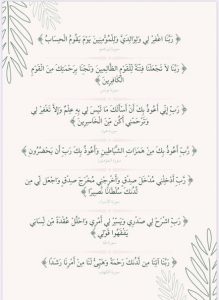 ﴿ رَبَّنَا اغْفِرْ لِي وَلِوَالِدَيَّ وَلِلْمُؤْمِنِينَ يَوْمَ يَقُومُ الْحِسَابُ ﴾
﴿ رَبَّنَا لَا تَجْعَلْنَا فِتْنَةً لِلْقَوْمِ الظَّالِمِينَ وَنَجِّنَا بِرَحْمَتِكَ مِنَ الْقَوْمِ
الْكَافِرِينَ ﴾
﴿ رَبِّ إِنِّي أَعُوذُ بِكَ أَنْ أَسْأَلَكَ مَا لَيْسَ لِي بِهِ عِلْمٌ وَإِلَّا تَغْفِرْ لِي
وَتَرْحَمْنِي أَكُنْ مِنَ الْخَاسِرِينَ ﴾
﴿ رَبِّ أَعُوذُ بِكَ مِنْ هَمَزَاتِ الشَّيَاطِينِ وَأَعُوذُ بِكَ رَبِّ أَنْ يَحْضُرُونِ ﴾
﴿ رَبِّ أَدْخِلْنِي مُدْخَلَ صِدْقٍ وَأَخْرِجْنِي مُخْرَجَ صِدْقٍ وَاجْعَلْ لِي مِنْ
لَدُنْكَ سُلْطَانًا نَصِيرًا ﴾
﴿ رَبِّ اشْرَحْ لِي صَدْرِي وَيَسِّرْ لِي أَمْرِي وَاحْلُلْ عُقْدَةً مِنْ لِسَانِي
يَفْقَهُوا قَوْلِي ﴾
﴿ رَبَّنَا آتِنَا مِنْ لَدُنْكَ رَحْمَةً وَهَيِّئْ لَنَا مِنْ أَمْرِنَا رَشَدًا ﴾